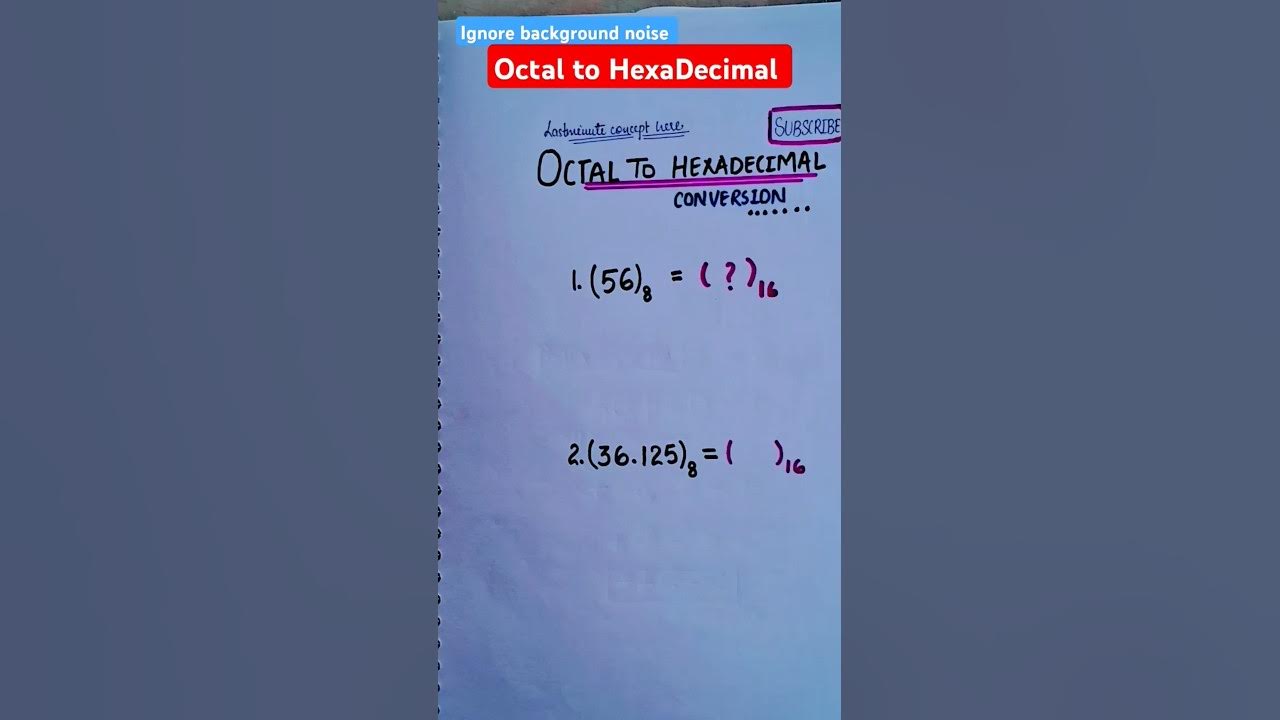 Ignore background noise
Octal to HexaDecimal
Lastminute concept here
SUBSCRIBE
OCTAL TO HEXADECIMAL
CONVERSION.......
1. (56)8 = ( ? )16
2. (36.125)8 = ( )16